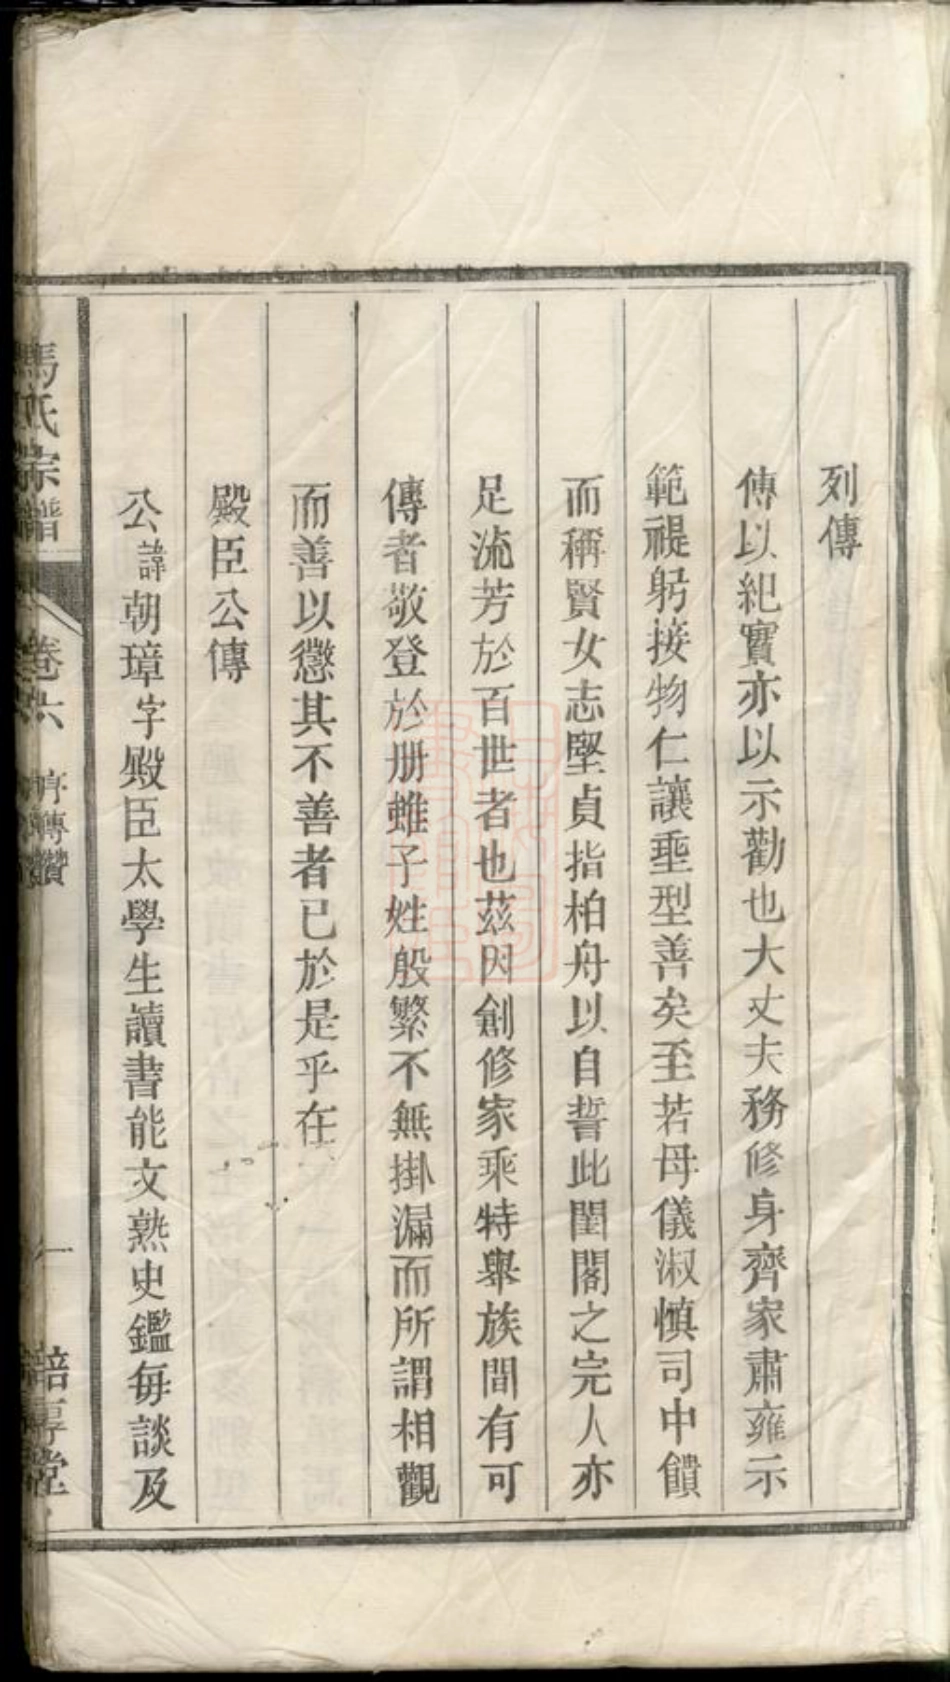 列傳
傳以紀實亦以示勸也大丈夫務修身齊家肅雍示
範禔躬接物仁讓垂型善矣至若母儀淑慎司中饋
而稱賢女志堅貞指柏舟以自誓此閨閣之完人亦
足流芳於百世者也茲因創修家乘特舉族間有可
傳者敬登於册雖子姓殷繁不無掛漏而所謂相觀
而善以懲其不善者已於是乎在
殿臣公傳
公諱朝璋字殿臣太學生讀書能文熟史鑑每談及
馬氏宗譜 卷六 序傳贊 一 堂